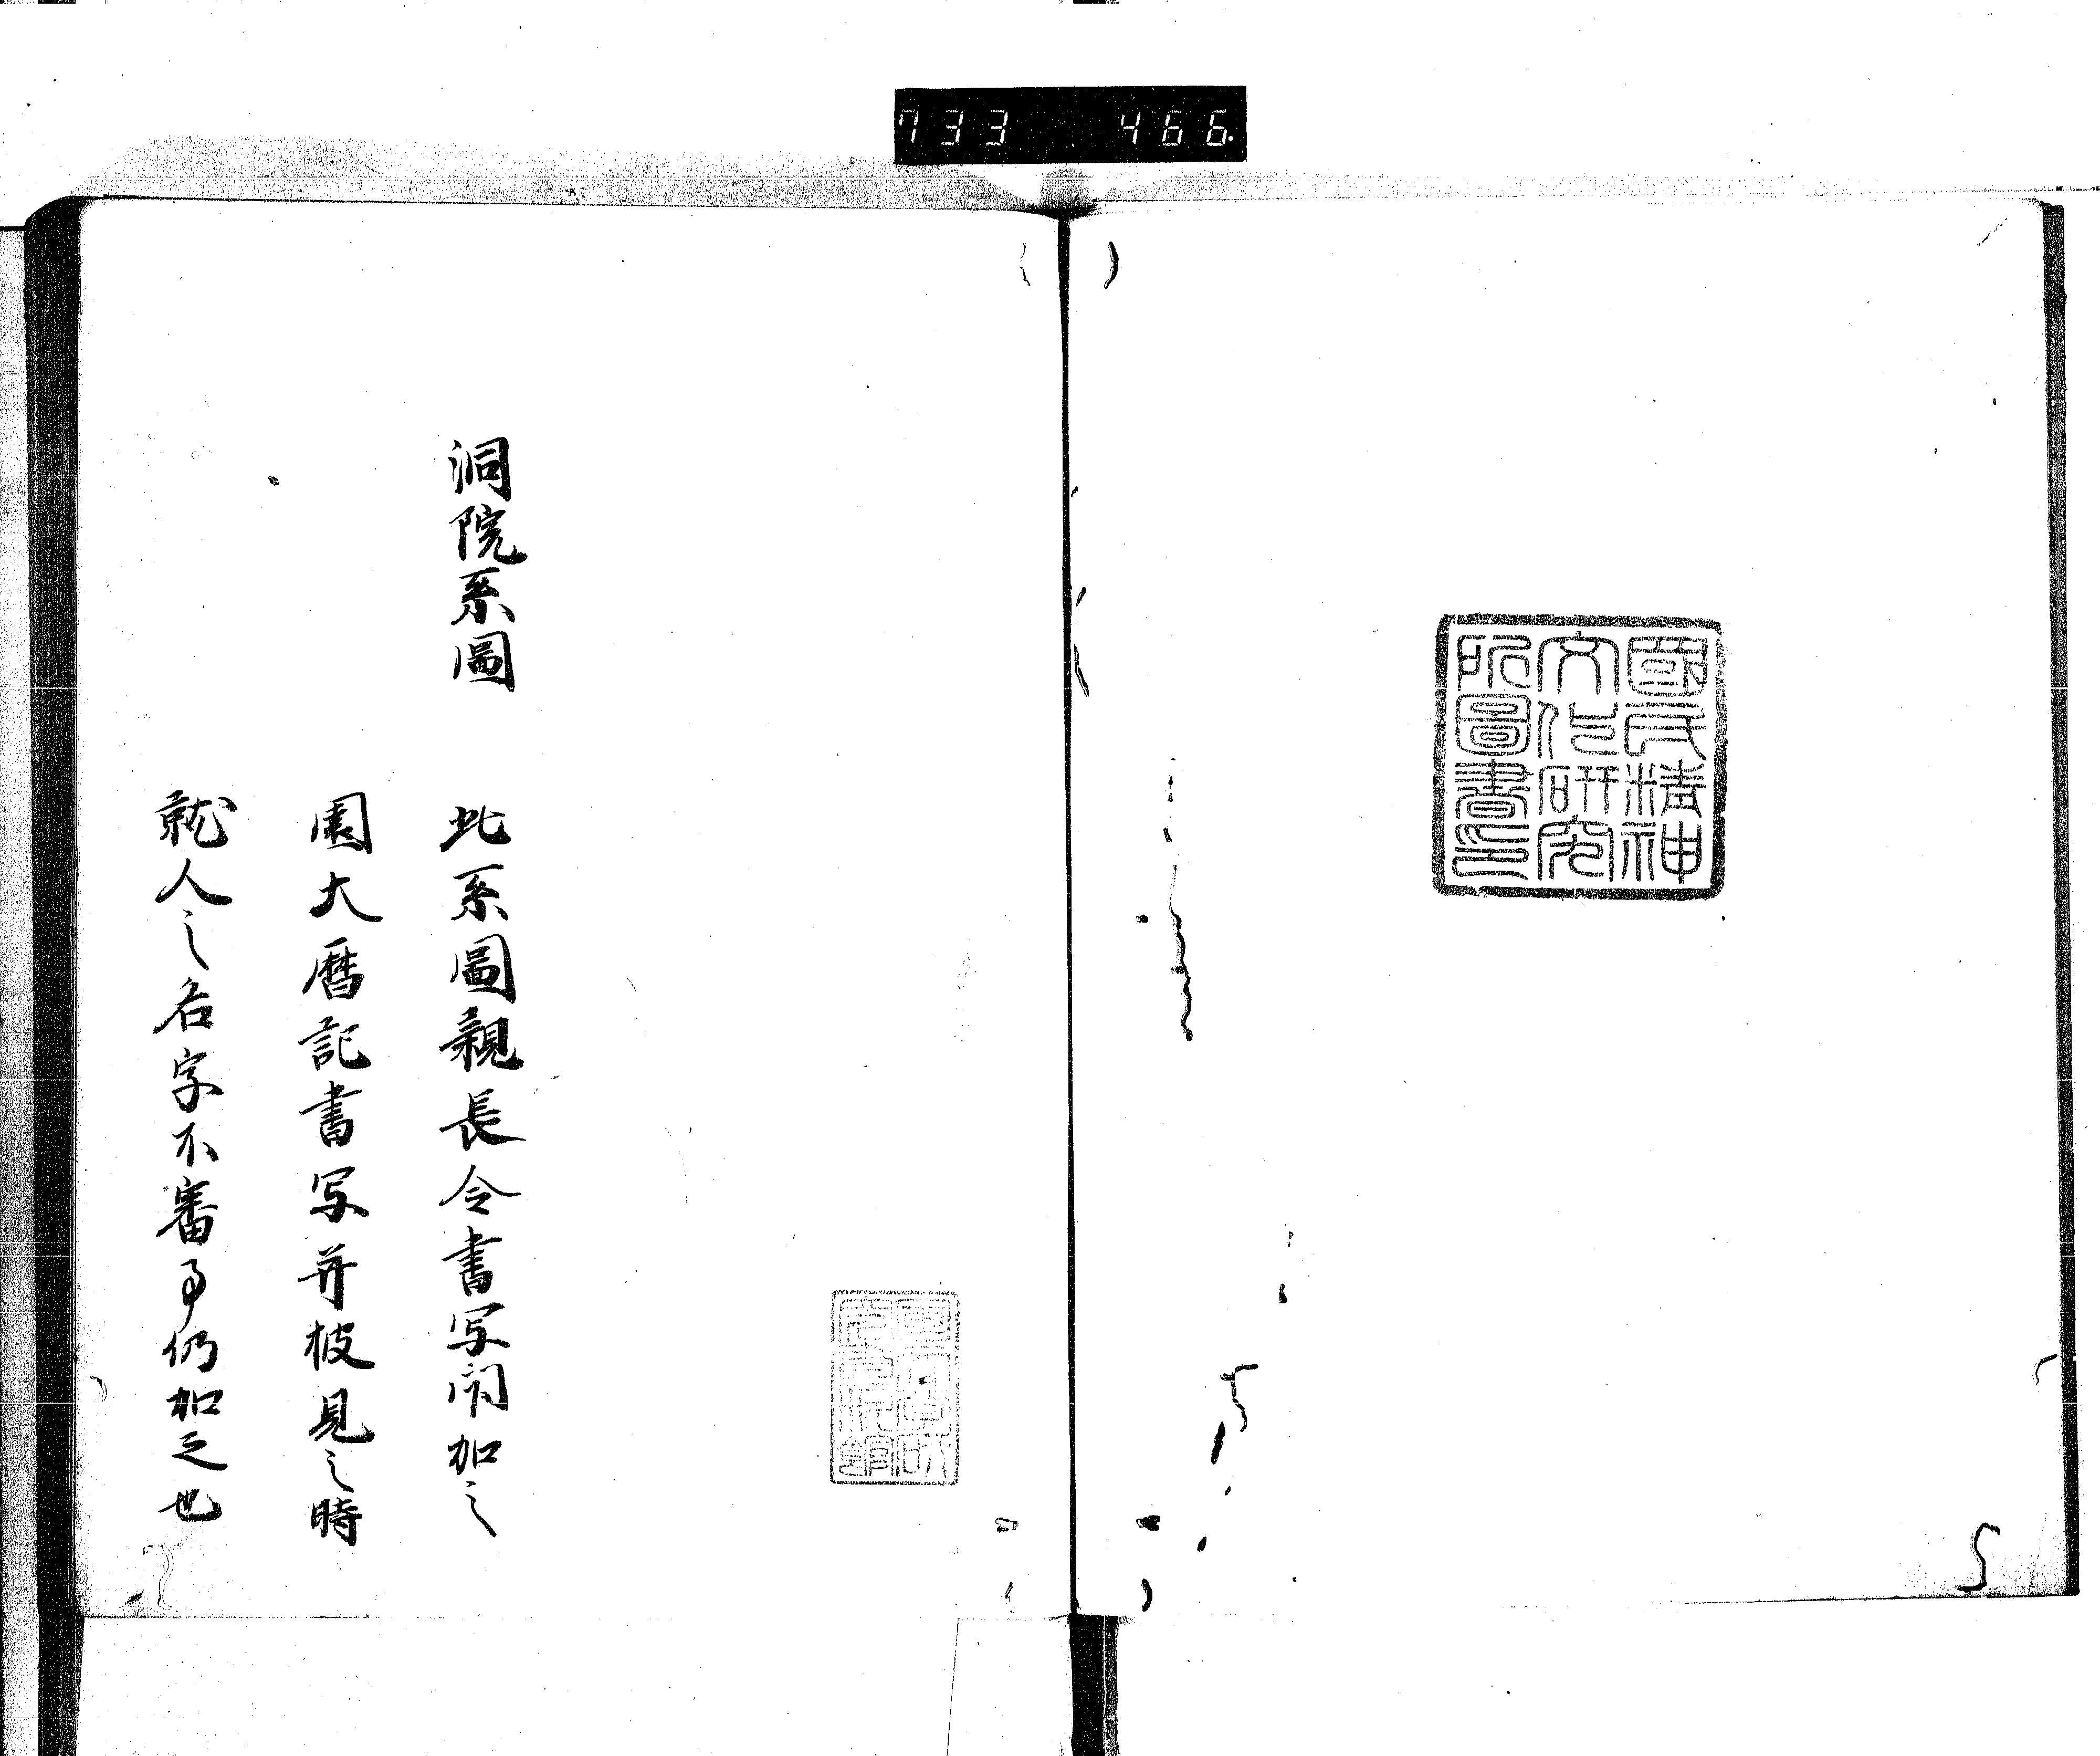 733 466
國民精神
文化研究
所圖書印
洞院系圖
此系圖親長令書写間加之
園大暦記書写并披見之時
就人之名字不審事仍加之也